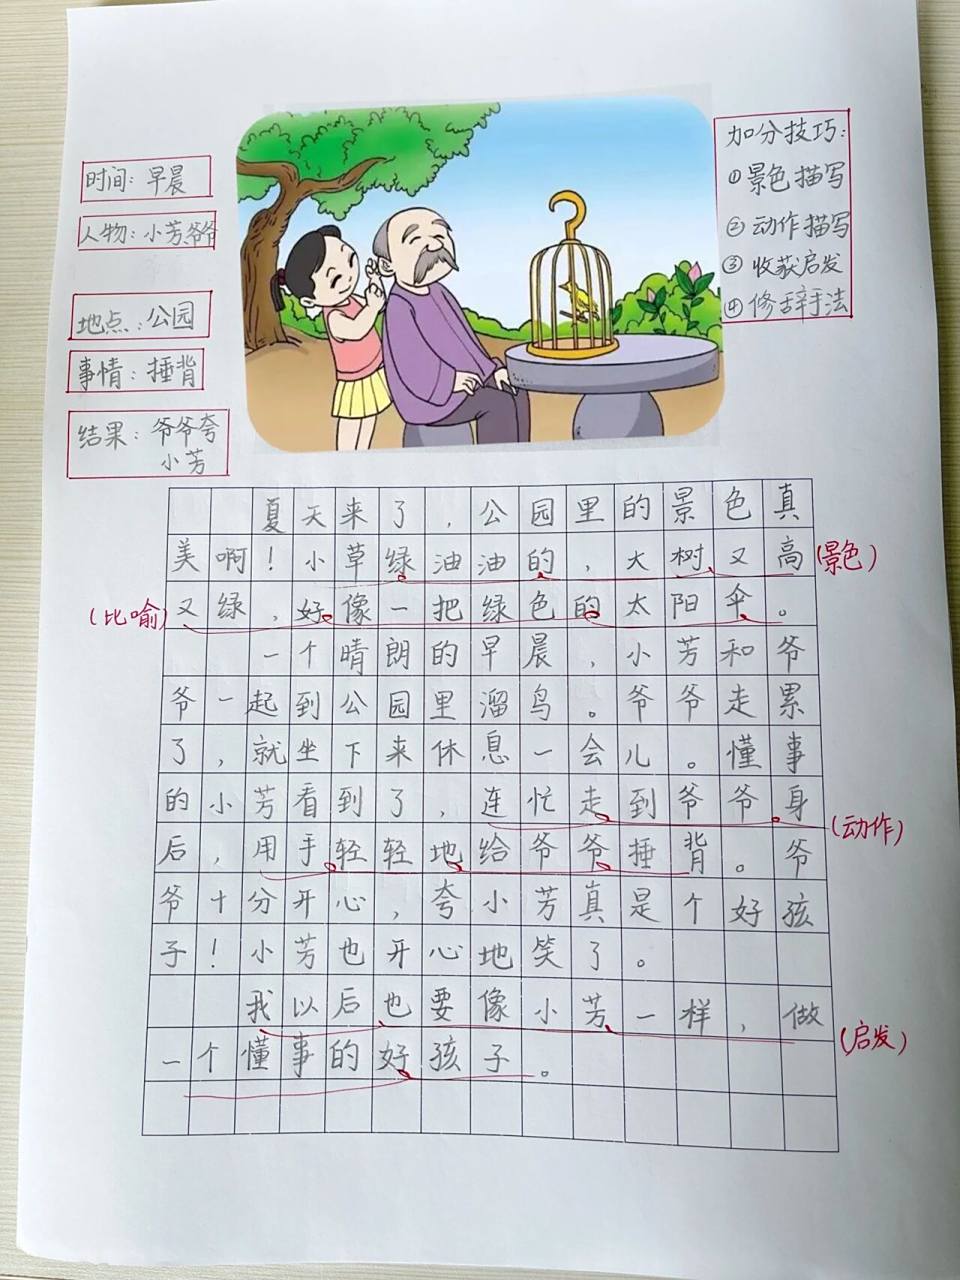 时间：早晨
人物：小芳、爷爷
地点：公园
事情：捶背
结果：爷爷夸
小芳
加分技巧：
①景色描写
②动作描写
③收获启发
④修辞手法
夏天来了，公园里的景色真
美啊！小草绿油油的，大树又高
(景色)
(比喻)
又绿，好像一把绿色的太阳伞。
一个晴朗的早晨，小芳和爷
爷一起到公园里溜鸟。爷爷走累
了，就坐下来休息一会儿。懂事
的小芳看到了，连忙走到爷爷身
(动作)
后，用手轻轻地给爷爷捶背。爷
爷十分开心，夸小芳真是个好孩
子！小芳也开心地笑了。
我以后也要像小芳一样，做
(启发)
一个懂事的好孩子。